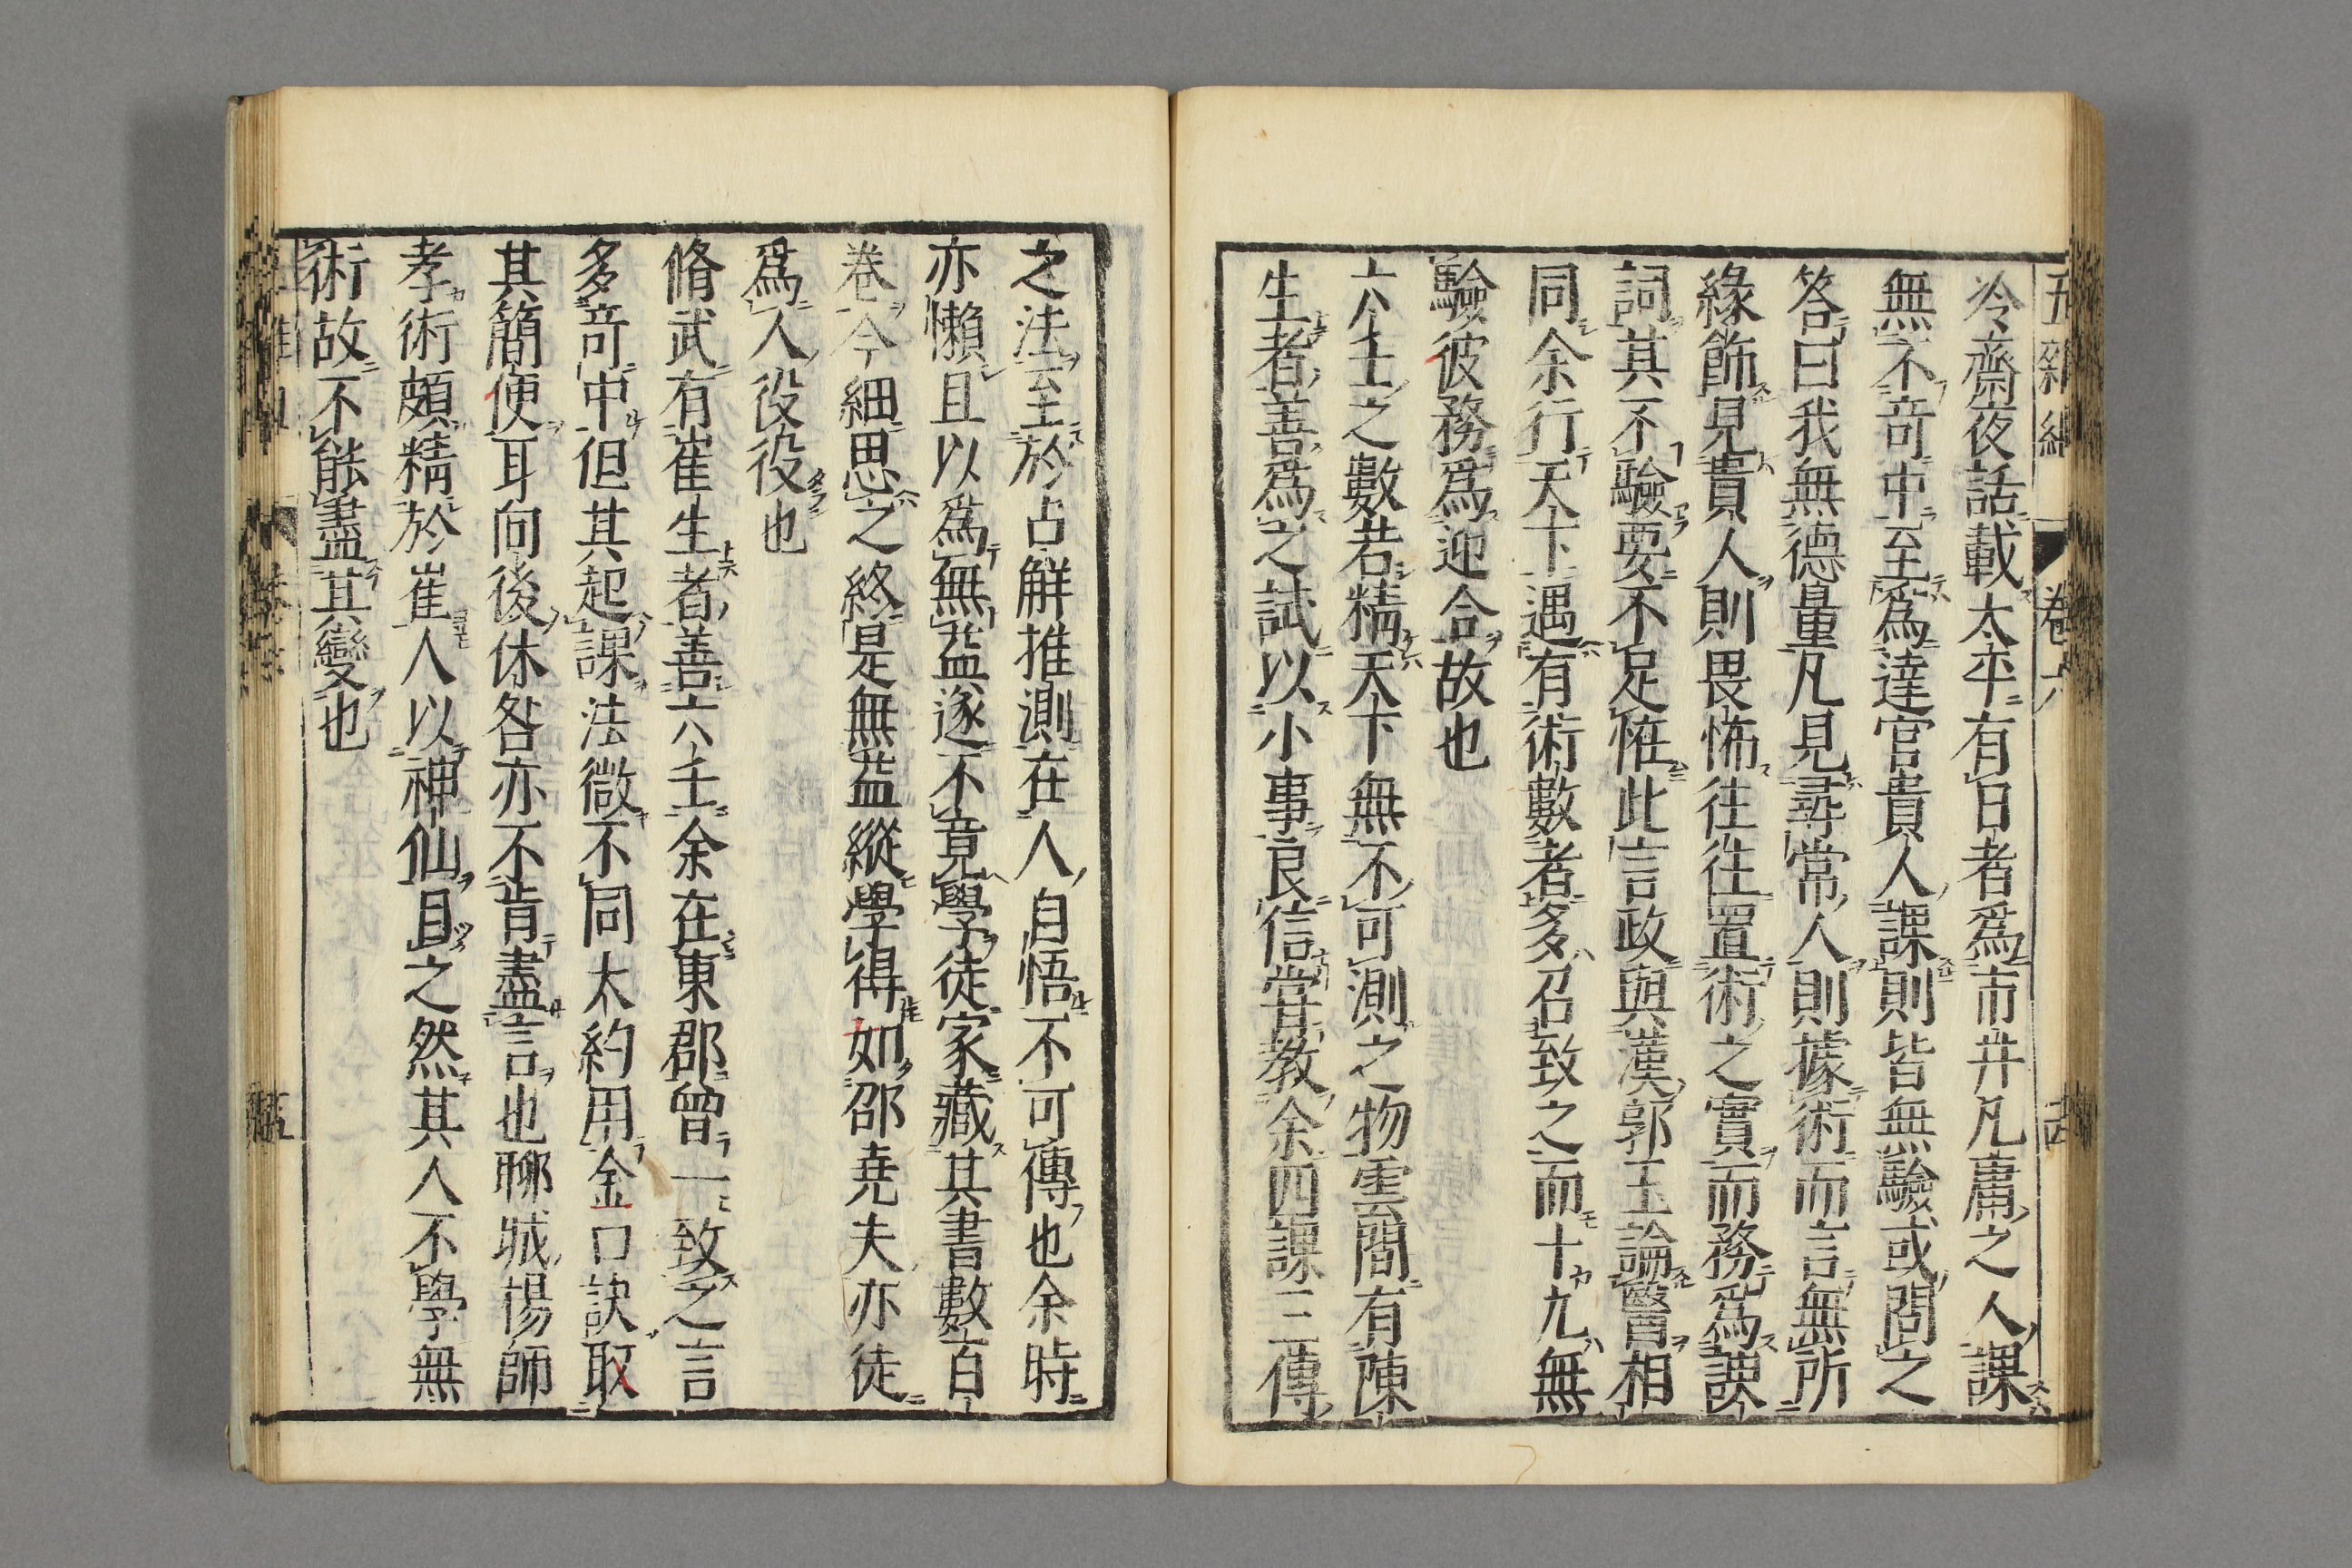 五雜組 卷六
冷齋夜話載太平有日者爲市井凡庸之人課
無不奇中至爲達官貴人課則皆無驗或問之
答曰我無德量凡見尋常人則據術而言無所
緣飾見貴人則畏怖往往置術之實而務爲諛
詞其不驗要不足怪此言政與漢郭玉論醫相
同余行天下遇有術數者多召致之而十九無
驗彼務爲迎合故也
六壬之數若精天下無不可測之物雲間有陳
生者善爲之試以小事良信嘗教余四課三傳
之法至於占解推測在人自悟不可傳也余時
亦懶且以爲無益遂不竟學徒家藏其書數百
卷今細思之終是無益縱學得如邵堯夫亦徒
爲人役役也
脩武有崔生者善六壬余在東郡曾一致之言
多奇中但其起課法微不同太約用金口訣取
其簡便耳向後休咎亦不肯盡言也聊城楊師
孝術頗精於崔人以神仙目之然其人不學無
術故不能盡其變也
五